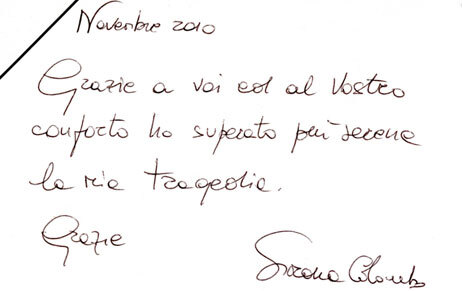 Novembre 2010
Grazie a voi ed al Vostro
conforto ho superato più serena
la mia tragedia.
Grazie
Simona Colombo